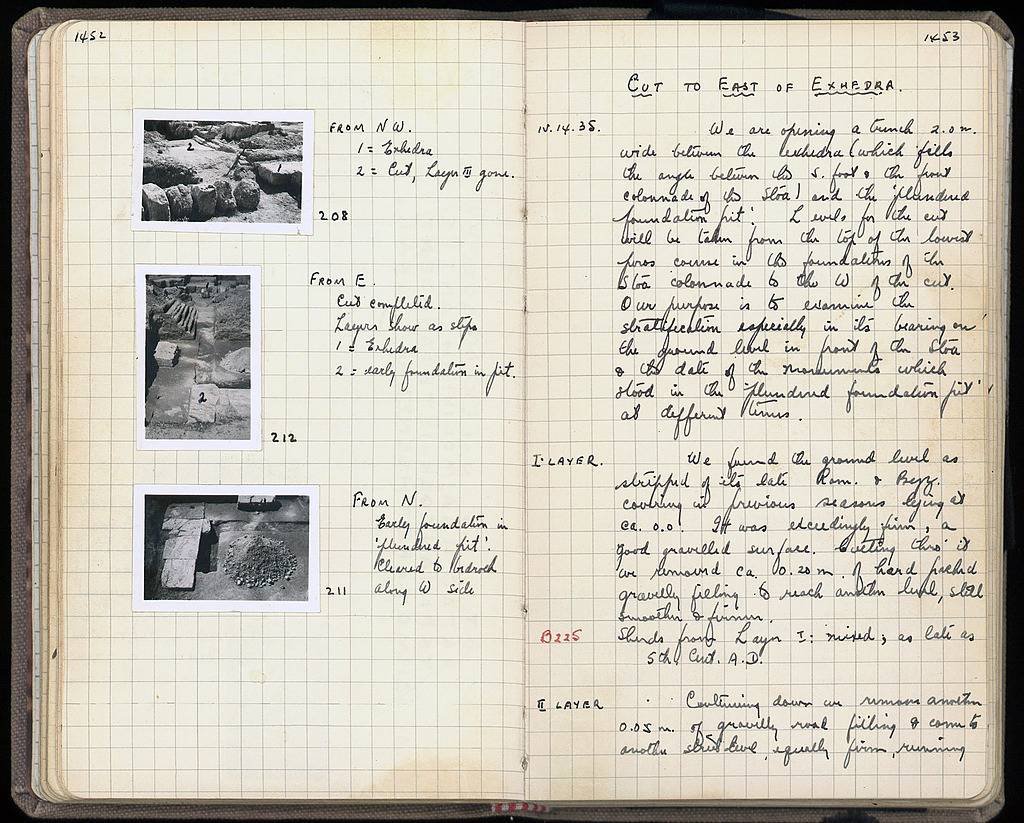 1452
FROM N.W.
1 = Exhedra
2 = Cut, Layer III gone.
2
1
208
FROM E.
Cut completed.
Layers show as steps
1 = Exhedra
2 = early foundation in pit.
2
212
FROM N.
Early foundation in
'plundered pit'.
Cleared to bedrock
along W side
211
1453
CUT TO EAST OF EXHEDRA.
IV.14.35. We are opening a trench 2.0 m.
wide between the exhedra (which fills
the angle between the S. foot & the front
colonnade of the Stoa) and the 'plundered
foundation pit'. Levels for the cut
will be taken from the top of the lowest
poros course in the foundations of the
Stoa colonnade to the W of the cut.
Our purpose is to examine the
stratification especially in its bearing on
the ground level in front of the Stoa
& the date of the monuments which
stood in the 'plundered foundation pit'
at different times.
I LAYER. We found the ground level as
stripped of its late Rom. & Byz.
covering in previous seasons lying at
ca. 0.0. It was exceedingly firm, a
good gravelled surface. Cutting thro' it
we removed ca. 0.20 m. of hard packed
gravelly filling to reach another level, still
smoother & firmer.
B225 Sherds from Layer I: mixed; as late as
5th Cent. A.D.
II LAYER Continuing down we remove another
0.05 m. of gravelly road filling & come to
another level, equally firm, running